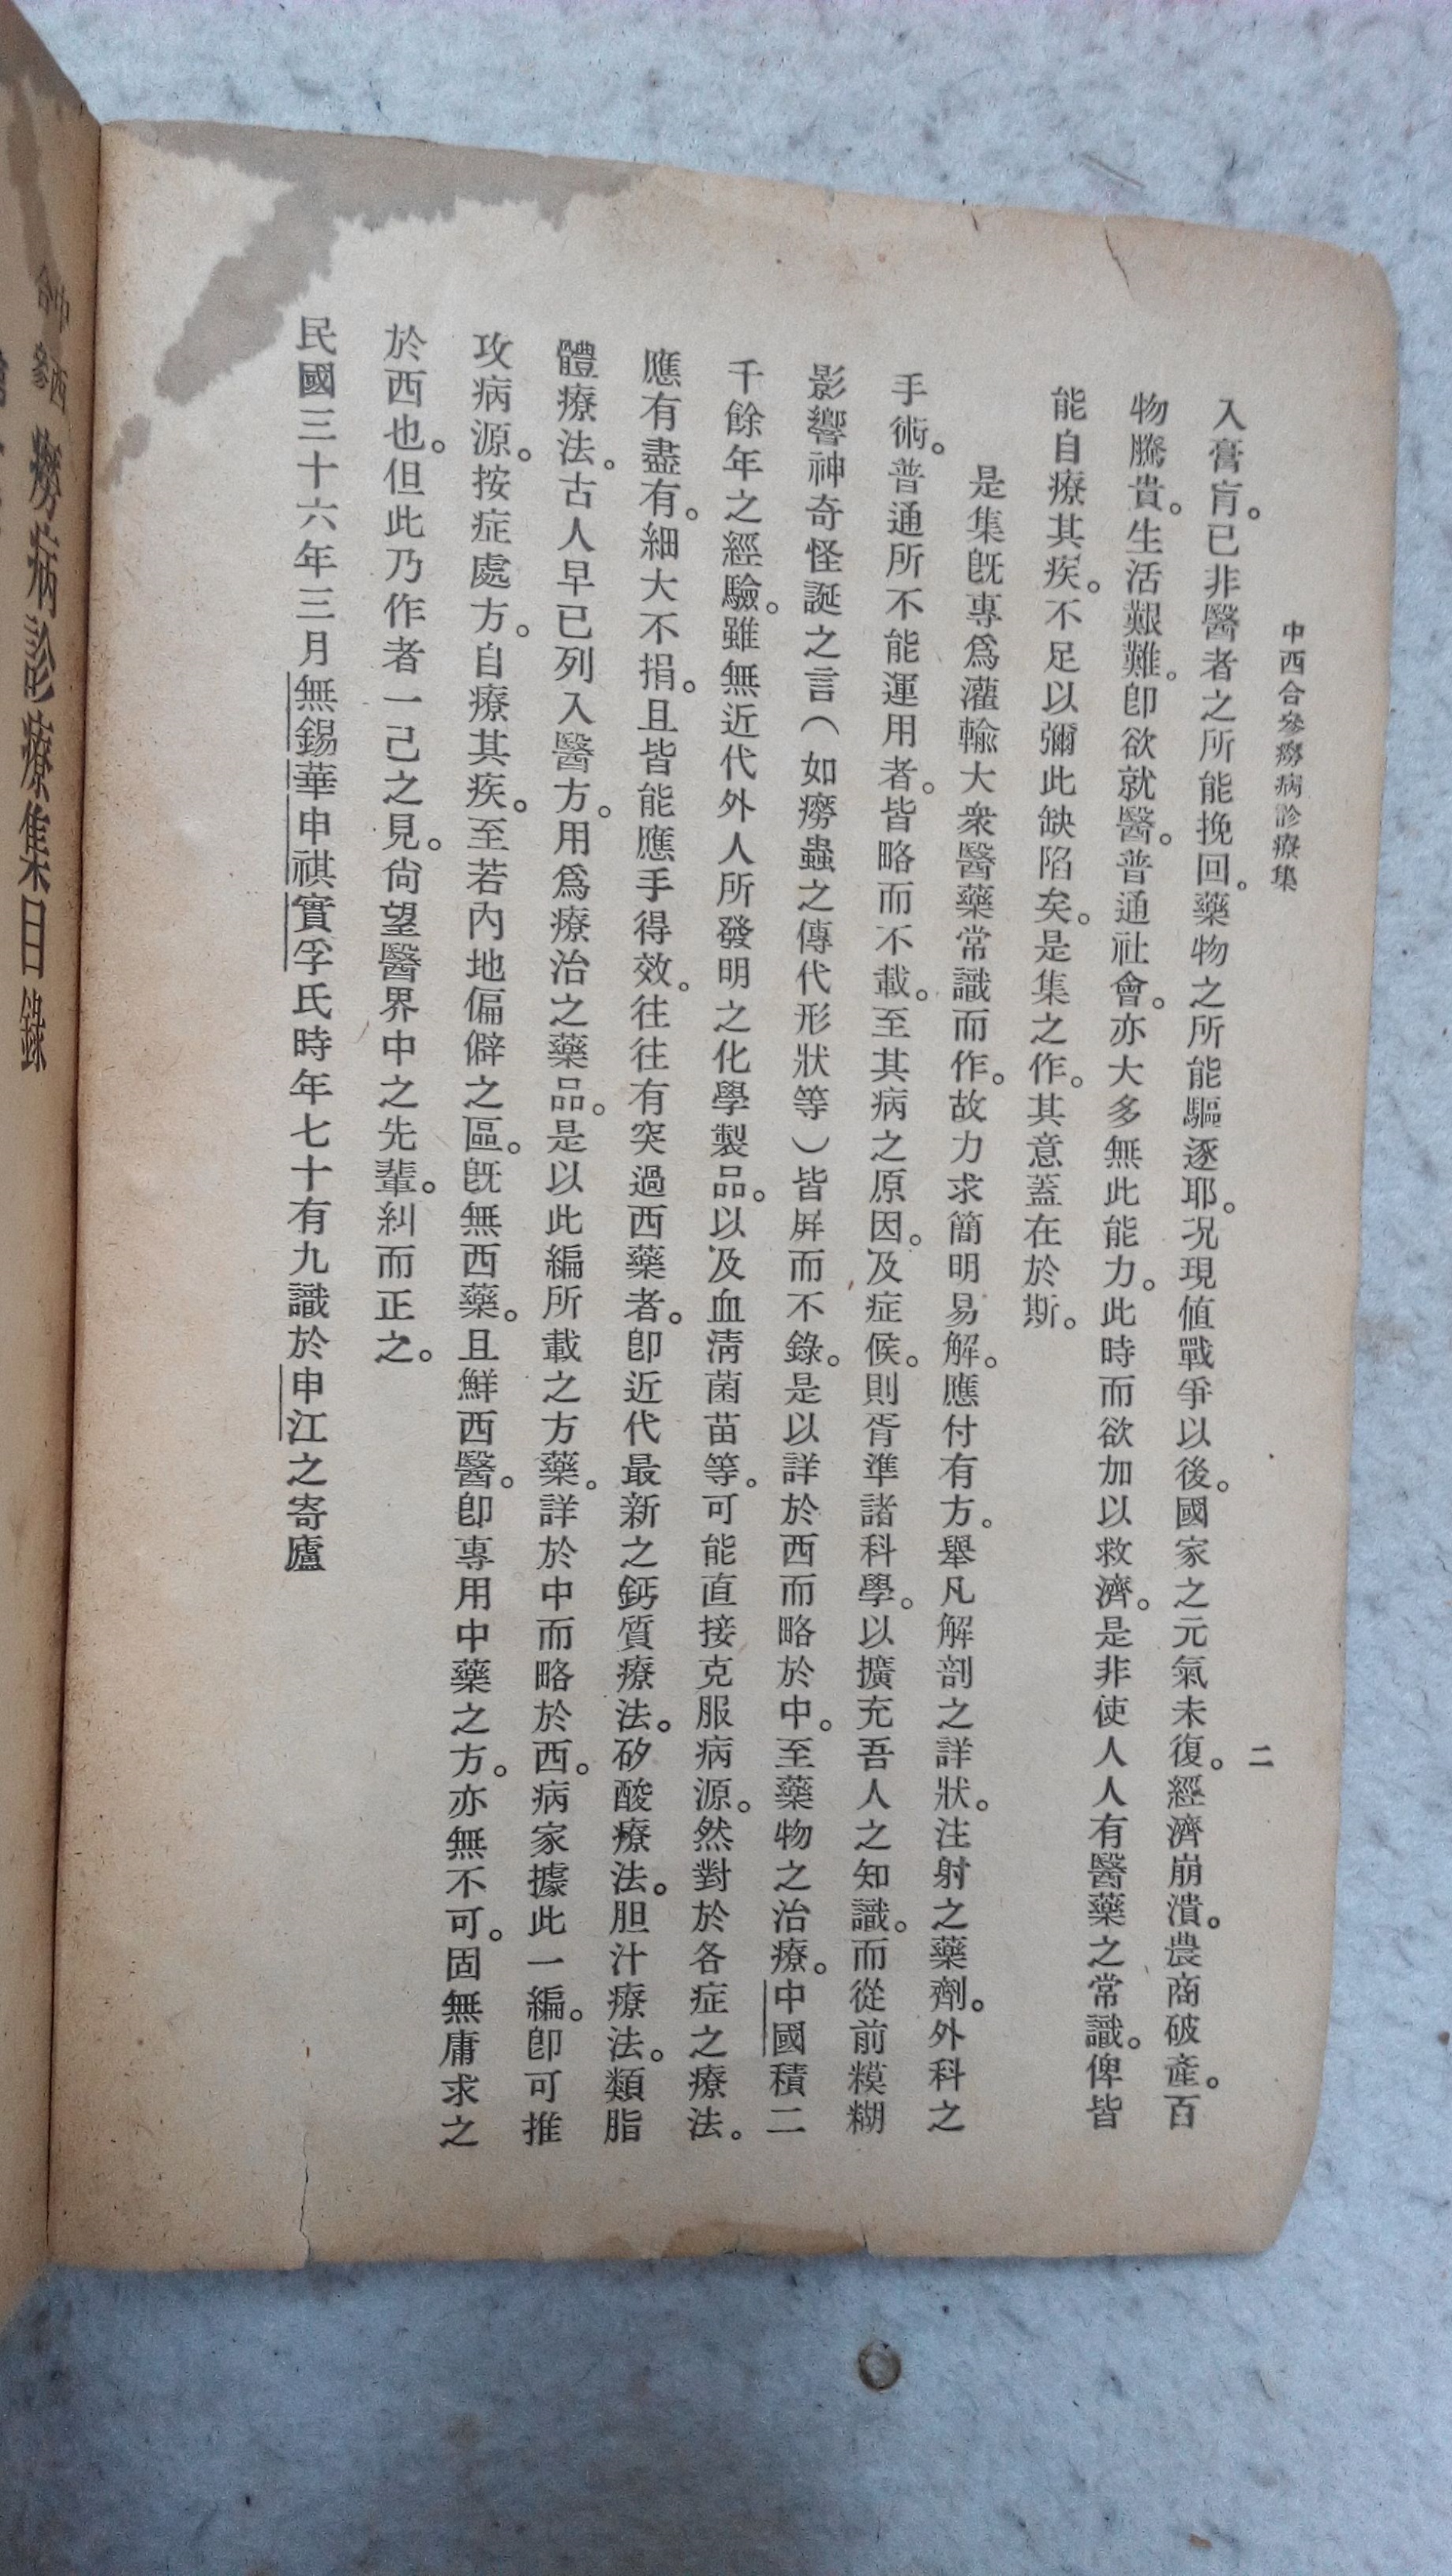 中西合參癆病診療集
二
入膏肓。已非醫者之所能挽回。藥物之所能驅逐耶。况現值戰爭以後。國家之元氣未復。經濟崩潰。農商破產。百
物騰貴。生活艱難。卽欲就醫。普通社會。亦大多無此能力。此時而欲加以救濟。是非使人人有醫藥之常識。俾皆
能自療其疾。不足以彌此缺陷矣。是集之作。其意蓋在於斯。
是集旣專爲灌輸大衆醫藥常識而作。故力求簡明易解。應付有方。舉凡解剖之詳狀。注射之藥劑。外科之
手術。普通所不能運用者。皆略而不載。至其病之原因。及症候。則胥準諸科學。以擴充吾人之知識。而從前糢糊
影響神奇怪誕之言（如癆蟲之傳代形狀等）皆屏而不錄。是以詳於西而略於中。至藥物之治療。中國積二
千餘年之經驗。雖無近代外人所發明之化學製品。以及血淸菌苗等。可能直接克服病源。然對於各症之療法。
應有盡有。細大不捐。且皆能應手得效。往往有突過西藥者。卽近代最新之鈣質療法。矽酸療法。胆汁療法。類脂
體療法。古人早已列入醫方。用爲療治之藥品。是以此編所載之方藥。詳於中而略於西。病家據此一編。卽可推
攻病源。按症處方。自療其疾。至若內地偏僻之區。旣無西藥。且鮮西醫。卽專用中藥之方。亦無不可。固無庸求之
於西也。但此乃作者一己之見。尙望醫界中之先輩。糾而正之。
民國三十六年三月無錫華申祺實孚氏時年七十有九識於申江之寄廬
中西合參癆病診療集目錄